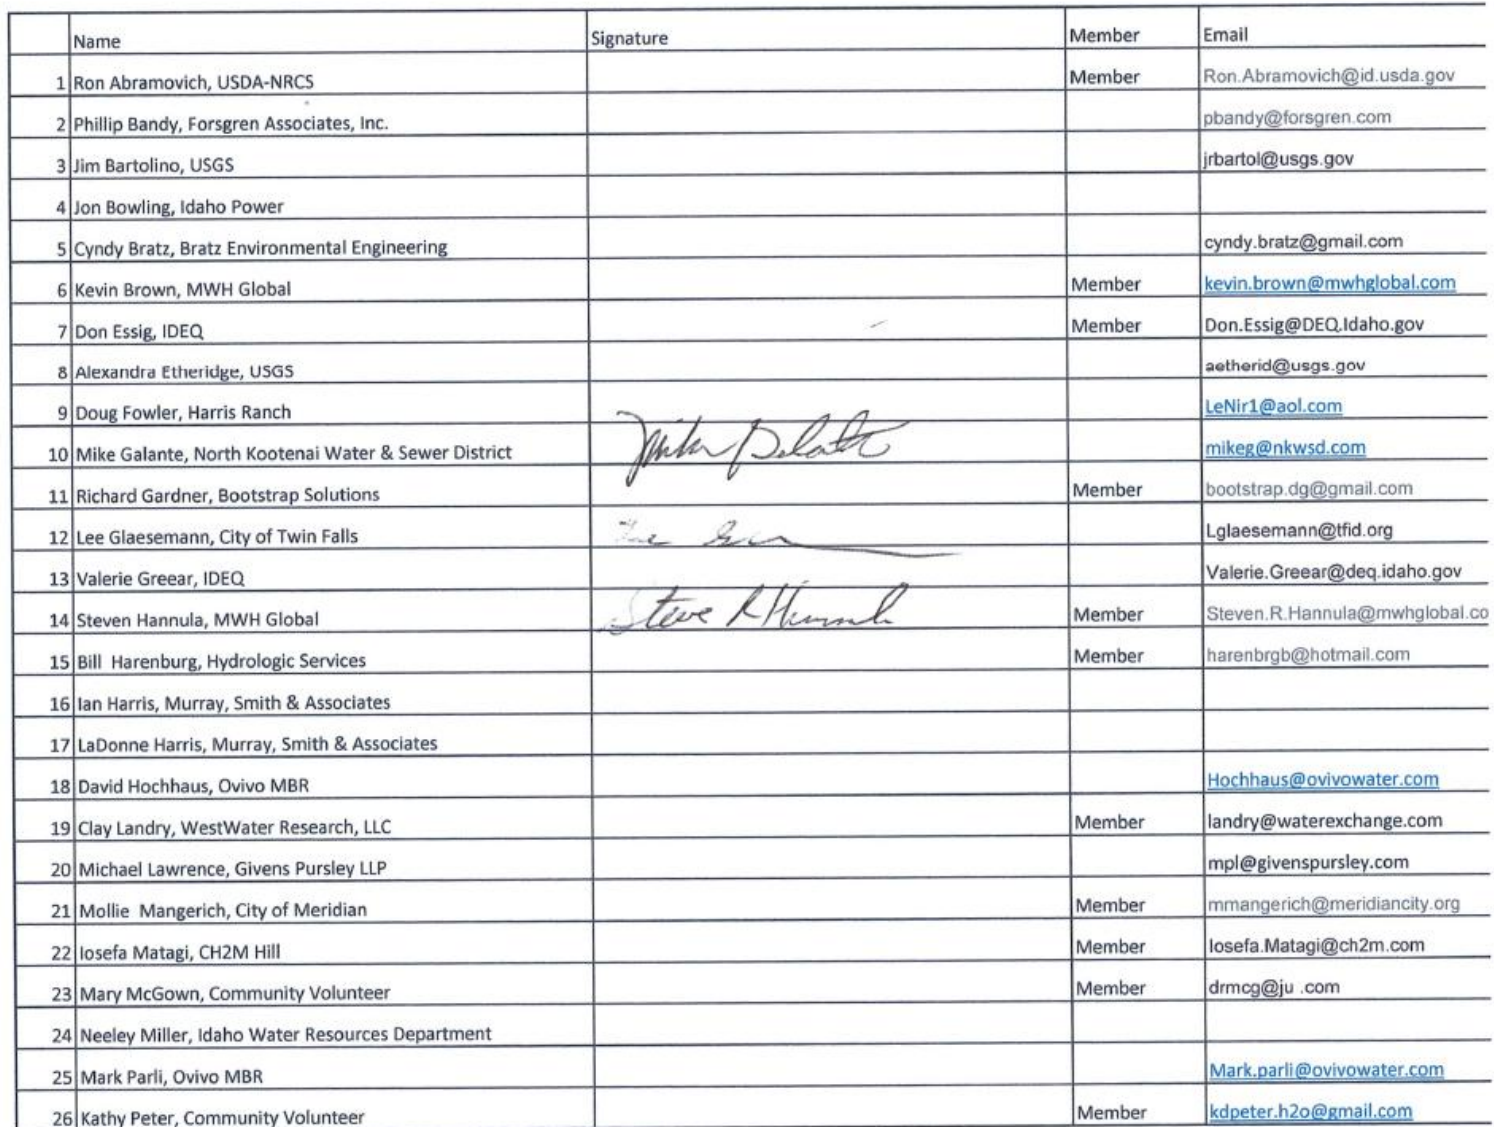 Name Signature Member Email
1 Ron Abramovich, USDA-NRCS Member Ron.Abramovich@id.usda.gov
2 Phillip Bandy, Forsgren Associates, Inc. pbandy@forsgren.com
3 Jim Bartolino, USGS jrbartol@usgs.gov
4 Jon Bowling, Idaho Power
5 Cyndy Bratz, Bratz Environmental Engineering cyndy.bratz@gmail.com
6 Kevin Brown, MWH Global Member kevin.brown@mwhglobal.com
7 Don Essig, IDEQ Member Don.Essig@DEQ.Idaho.gov
8 Alexandra Etheridge, USGS aetherid@usgs.gov
9 Doug Fowler, Harris Ranch LeNir1@aol.com
10 Mike Galante, North Kootenai Water & Sewer District mikeg@nkwsd.com
11 Richard Gardner, Bootstrap Solutions Member bootstrap.dg@gmail.com
12 Lee Glaesemann, City of Twin Falls Lglaesemann@tfid.org
13 Valerie Greear, IDEQ Valerie.Greear@deq.idaho.gov
14 Steven Hannula, MWH Global Steve R Member Steven.R.Hannula@mwhglobal.co
15 Bill Harenburg, Hydrologic Services Member harenbrgb@hotmail.com
16 Ian Harris, Murray, Smith & Associates
17 LaDonne Harris, Murray, Smith & Associates
18 David Hochhaus, Ovivo MBR Hochhaus@ovivowater.com
19 Clay Landry, WestWater Research, LLC Member landry@waterexchange.com
20 Michael Lawrence, Givens Pursley LLP mpl@givenspursley.com
21 Mollie Mangerich, City of Meridian Member mmangerich@meridiancity.org
22 Iosefa Matagi, CH2M Hill Member Iosefa.Matagi@ch2m.com
23 Mary McGown, Community Volunteer Member drmcg@ju .com
24 Neeley Miller, Idaho Water Resources Department
25 Mark Parli, Ovivo MBR Mark.parli@ovivowater.com
26 Kathy Peter, Community Volunteer Member kdpeter.h2o@gmail.com